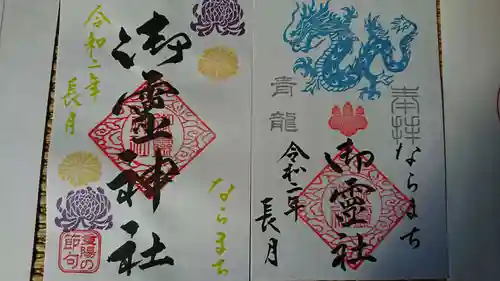 令和二年
長月
御霊神社
ならまち
重陽の
節句
奉拝
青龍
ならまち
御霊社
令和二年
長月